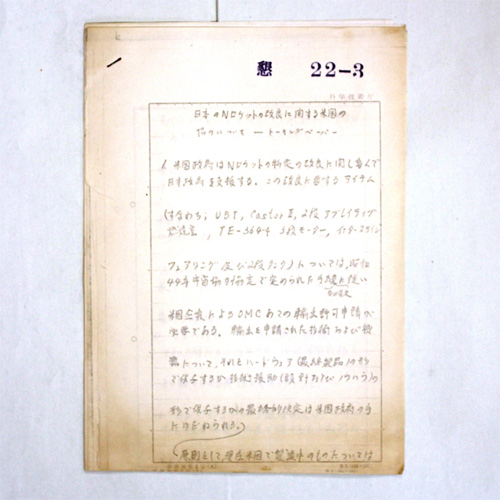 懇 22-3
科学技術庁
日本のNロケットの改良に関する米国の
協力について ートーキングペーパー
1. 米国政府はNロケットの特定の改良に関し喜んで
日本政府を支援する。この改良に要するアイテム
(すなわち; UBT, Castor II, 2段アブレイティブ
燃焼室, TE-364-4 3段モーター,
フェアリング及び2段タンク)については、昭和
44年 で定められた手続に従い
米国企業によるOMCあての輸出許可申請が
必要である。輸出を申請された技術および機
器について、それをハードウェア(最終製品)の形
で供与するか技術援助(設計および
形で供与するかの最終的決定は米国政府の手
にゆだねられる。)
原則として、現在米国で製造中のものについては